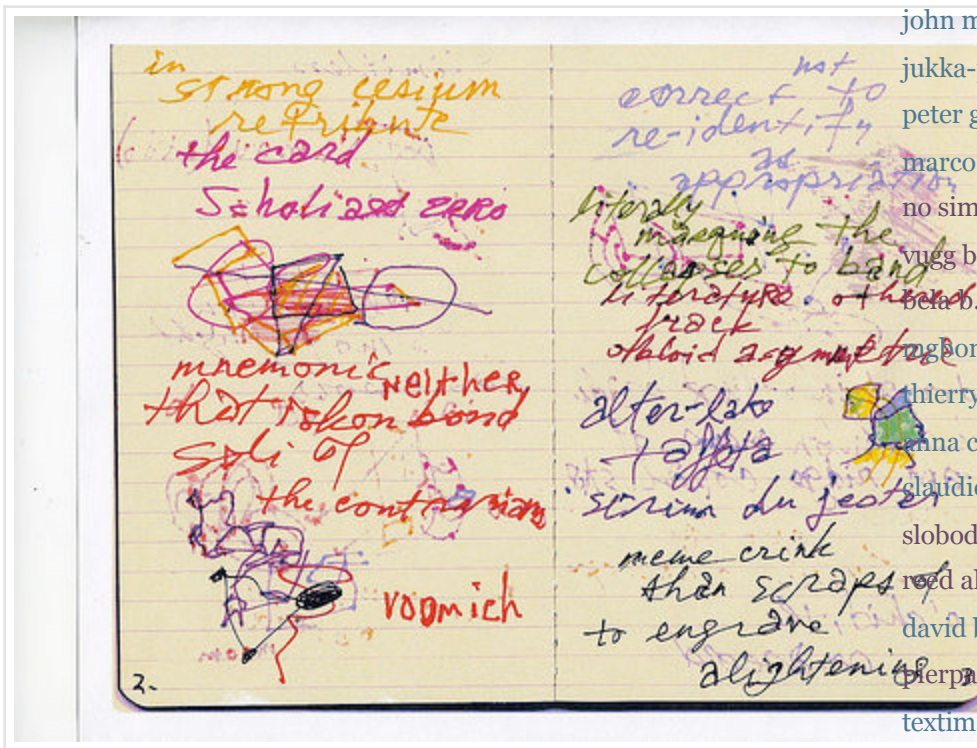 in
strong cesium
retribute
the card
Scholiast zero
mnemonic
neither
that
bond
of
the contrarian
voomich
2.
not
correct to
re-identify
as
appropriation
literally
the
collapses to band
literature.
track
alter-lake
taffeta
du jester
meme crink
than scraps of
to engrave
alightening
3
john m
jukka-
peter g
marco
no sim
vugg b
bela b.
mgbon
thierry
anna c
claudio
slobod
reed al
david b
pierpa
textim